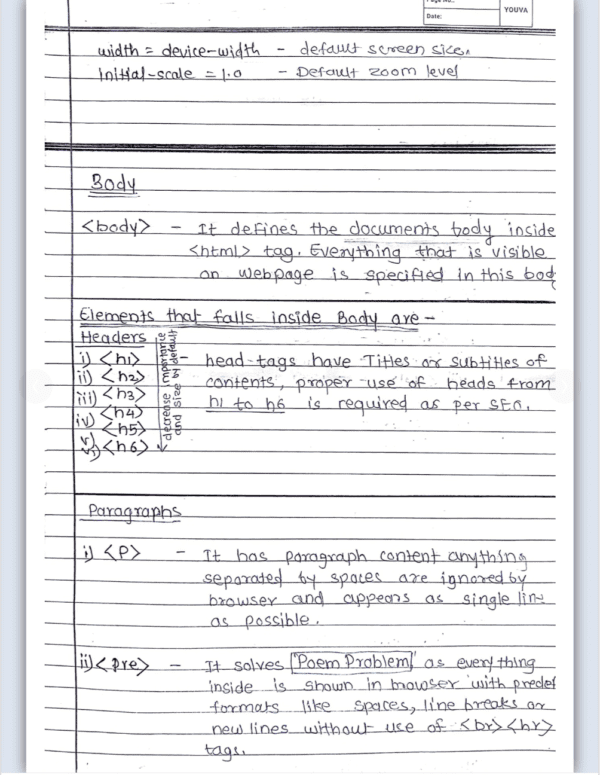 Page No.:
Date:
YOUVA
width = device-width - default screen size.
initial-scale = 1.0 - Default zoom level
Body
<body> - It defines the documents body inside
<html> tag. Everything that is visible
on webpage is specified in this bod
Elements that falls inside Body are -
Headers
i) <h1> - head-tags have Titles or subtitles of
ii) <h2> contents, proper use of heads from
iii) <h3> h1 to h6 is required as per SEO.
iv) <h4>
v) <h5>
vi) <h6>
decrease importance
and size by default
Paragraphs
i) <P> - It has paragraph content anything
separated by spaces are ignored by
browser and appears as single lin
as possible.
ii) <pre> - It solves "Poem Problem" as everything
inside is shown in browser with predef
formats like spaces, line breaks or
new lines without use of <br> <hr>
tags.